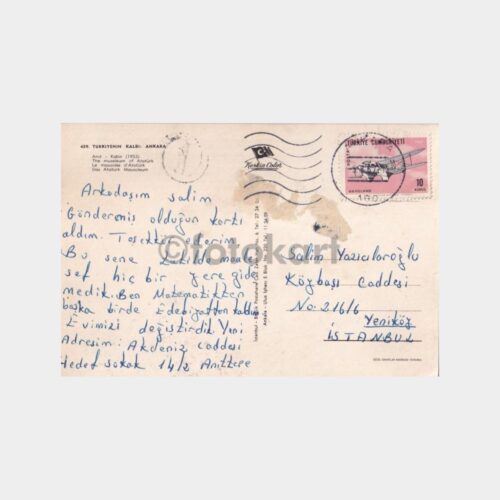 459. TÜRKİYENİN KALBİ: ANKARA
Anıt - Kabir (1953)
The mausoleum of Atatürk
Le mausolée d'Atatürk
Das Atatürk Mausoleum
Keskin Color
TÜRKİYE CUMHURİYETİ
10
KURUŞ
Arkadaşım salim
Göndermiş olduğun kartı
aldım. Teşekkür ederim
Bu sene
hiç bir yere gide
medik. Ben Matematikten
başka birde Edebiyattan kaldım
Evimizi değiştirdik Yeni
Adresim: Akdeniz caddesi
Hedef sokak 14/2 Anıttepe
©fotokart
Salim Yazıcılaroğlu
Köybaşı Caddesi
No: 216/6
Yeniköy
İSTANBUL